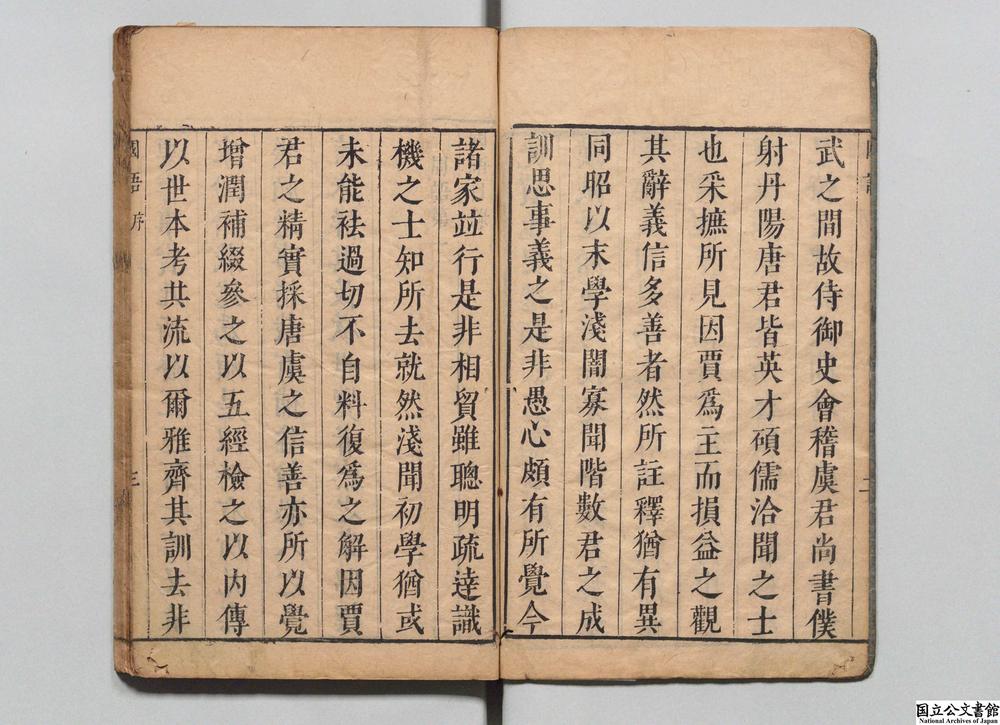 武之間故侍御史會稽虞君尚書僕
射丹陽唐君皆英才碩儒洽聞之士
也采摭所見因賈爲主而損益之觀
其辭義信多善者然所註釋猶有異
同昭以末學淺闇寡聞階數君之成
訓思事義之是非愚心頗有所覺今
諸家竝行是非相貿雖聰明疏達識
機之士知所去就然淺聞初學猶或
未能袪過切不自料復爲之解因賈
君之精實採唐虞之信善亦所以覺
增潤補綴參之以五經檢之以內傳
以世本考其流以爾雅齊其訓去非
國語 序
三
国立公文書館
National Archives of Japan